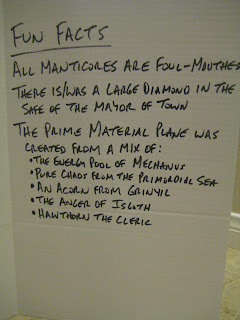 FUN FACTS
ALL MANTICORES ARE FOUL-MOUTHED
THERE IS/WAS A LARGE DIAMOND IN THE
SAFE OF THE MAYOR OF TOWN
THE PRIME MATERIAL PLANE WAS
CREATED FROM A MIX OF:
•THE ENERGY POOL OF MECHANUS
•PURE CHAOS FROM THE PRIMORDIAL SEA
•AN ACORN FROM
•THE ANGER OF
•HAWTHORN THE CLERIC